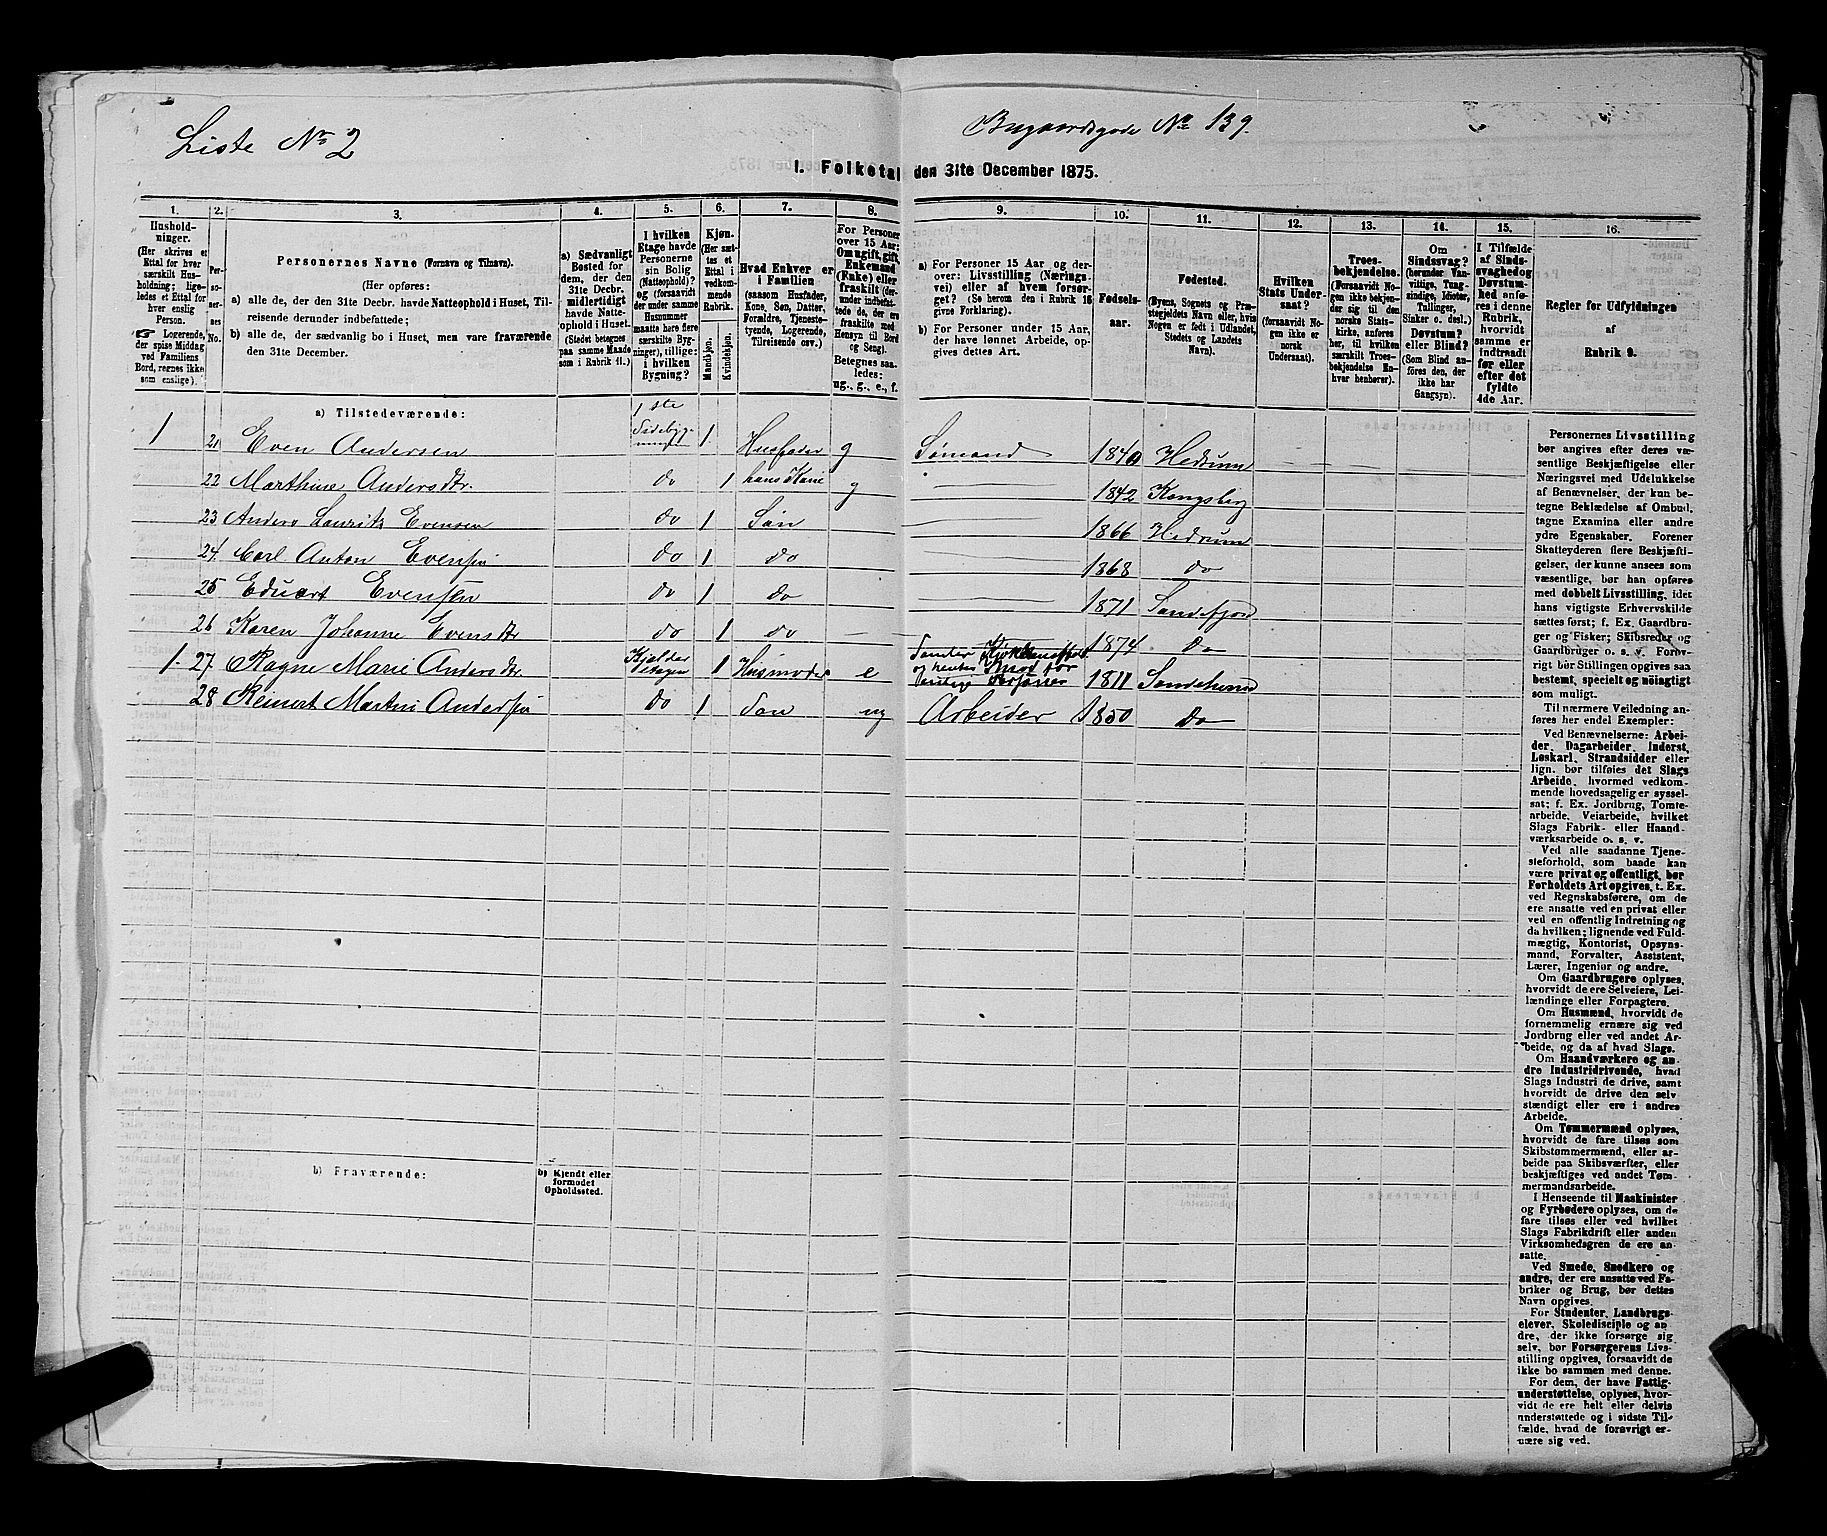 Liste No 2
Bugaardsgade No 139.
I. Folketal den 31te December 1875.
1. 2. 3. 4. 5. 6. 7. 8. 9. 10. 11. 12. 13. 14. 15. 16.
Hushold-
ninger.
(Her skrives et
Ettal for hver
særskilt Hus-
holdning; lige-
ledes et Ettal for
hver enslig
Person.
☞ Logerende,
der spise Middag
ved Familiens
Bord, regnes ikke
som enslige).
Per-
so-
ner-
nes
No.
Personernes Navne (Fornavn og Tilnavn).
(Her opføres:
a) alle de, der den 31te Decbr. havde Natteophold i Huset, Til-
reisende derunder indbefattede;
b) alle de, der sædvanlig bo i Huset, men vare fraværende
den 31te December.
a) Sædvanligt
Bosted for
dem, der den
31te Decbr.
midlertidigt
havde Natte-
ophold i Huset.
(Stedet betegnes
paa samme Maade
som i Rubrik 11.)
I hvilken
Etage havde
Personerne
sin Bolig
(Natteophold)?
og (forsaavidt
der under samme
Husnummer
maatte høre flere
særskilte Byg-
ninger), tillige:
i hvilken
Bygning?
Kjøn.
(Her sæt-
tes et
Ettal i
vedkom-
mende
Rubrik.
Mandkjøn.
Kvindekjøn.
Hvad Enhver er
i Familien
(saasom Husfader,
Kone, Søn, Datter,
Forældre, Tjeneste-
tyende, Logerende,
Tilreisende osv.)
For Personer
over 15 Aar;
Om ugift, gift,
Enkemand
(Enke) eller
fraskilt (der-
under indbefat-
tede de, der ere
fraskilte med
Hensyn til Bord
og Seng).
Betegnes saa-
ledes:
ug., g., e., f.
a) For Personer 15 Aar og der-
over: Livsstilling (Nærings-
vei) eller af hvem forsør-
get? (Se herom den i Rubrik 16
givne Forklaring).
b) For Personer under 15 Aar,
der have lønnet Arbeide, op-
gives dettes Art.
Fødsels-
aar.
Fødested.
(Byens, Sognets og Præ-
stegjeldets Navn eller, hvis
Nogen er født i Udlandet,
Stedets og Landets
Navn).
Hvilken
Stats Under-
saat?
(forsaavidt No-
gen ikke er
norsk
Undersaat).
Troes-
bekjendelse.
(Forsaavidt No-
gen ikke bekjen-
der sig til den
norske Stats-
kirke, anføres
her, til hvilken
særskilt Troes-
bekjendelse En-
hver henhører).
Om
Sindssvag?
(herunder Van-
vittige, Tung-
sindige, Idioter,
Tullinger,
Sinker o. desl.)
Døvstum?
eller Blind?
(Som Blind an-
føres den, der
ikke har
Gangsyn).
I Tilfælde
af Sinds-
svaghed og
Døvstum-
hed anfø-
res i denne
Rubrik,
hvorvidt
samme er
indtraadt
før eller
efter det
fyldte
4de Aar.
Regler for Udfyldningen
af
Rubrik 9.
a) Tilstedeværende:
1 21 Even Andersen 1ste Sidebygningen 1 Husfader g Sømand 1840 Hedrum
22 Marthine Andersdtr. do 1 hans Kone g 1842 Kongsberg
23 Anders Lauritz Evensen do 1 Søn 1866 Hedrum
24. Carl Anton Evensen do 1 do 1868 do
25 Eduart Evensen do 1 do 1871 Sandefjord
26 Karen Johanne Evensdtr do 1 do 1874 do
1. 27. Ragne Marie Andersdtr. Kjelder Etagen 1 Husmoder e 1811 Sandeherred
28 Reinert Martin Andersen do 1 Søn ug Arbeider 1850 do
b) Fraværende:
b) Kjendt eller
formodet
Opholdssted.
Personernes Livsstilling
bør angives efter deres væ-
sentlige Beskjæftigelse eller
Næringsvei med Udelukkelse
af Benævnelser, der kun be-
tegne Beklædelse af Ombud,
tagne Examina eller andre
ydre Egenskaber. Forener
Skatteyderen flere Beskjæfti-
gelser, der kunne ansees som
væsentlige, bør han opføres
med dobbelt Livsstilling, idet
hans vigtigste Erhvervskilde
sættes først; f. Ex. Gaardbru-
ger og Fisker; Skibsreder og
Gaardbruger o. s. v. Forøv-
rigt bør Stillingen opgives saa
bestemt, specielt og nöiagtigt
som muligt.
Til nærmere Veiledning an-
føres her endel Exempler:
Ved Benævnelserne: Arbei-
der, Dagarbeider, Inderst,
Løskarl, Strandsidder eller
lign. bør tilføies det Slags
Arbeide, hvormed vedkom-
mende hovedsagelig er syssel-
sat; f. Ex. Jordbrug, Tomte-
arbeide, Veiarbeide, hvilket
Slags Fabrik- eller Haand-
værksarbeide o. s. v.
Ved alle saadanne Tjene-
steforhold, som baade kan
være privat og offentligt, bør
Forholdets Art opgives, t. Ex.
ved Regnskabsførere, om de
ere ansatte ved en privat eller
ved en offentlig Indretning og
da hvilken; lignende ved Fuld-
mægtig, Kontorist, Opsyns-
mand, Forvalter, Assistent,
Lærer, Ingeniør og andre.
Om Gaardbrugere oplyses,
hvorvidt de ere Selveiere, Lei-
lændinge eller Forpagtere.
Om Husmænd, hvorvidt de
fornemmelig ernære sig ved
Jordbrug eller ved andet Ar-
beide, og da af hvad Slags.
Om Haandværkere og an-
dre Industridrivende, hvad
Slags Industri de drive, samt
hvorvidt de drive den selv
stændigt eller ere i andres
Arbeide.
Om Tømmermænd oplyses,
hvorvidt de fare tilsøs som
Skibstømmermænd, eller ar-
beide paa Skibsværfter, eller
beskjæftiges ved andet Tøm-
mermandsarbeide.
I Henseende til Maskinister
og Fyrbødere oplyses, om de
fare tilsøs eller ved hvilket
Slags Fabrikdrift eller anden
Virksomhedsgren de ere an-
satte.
Ved Smede, Snedkere og
andre, der ere ansatte ved Fa-
briker og Brug, bør dettes
Navn opgives.
For Studenter, Landbrugs-
elever, Skoledisciple og an-
dre, der ikke forsørge sig
selv, bør Forsørgerens Livs-
stilling opgives, forsaavidt de
ikke bo sammen med denne.
For dem, der have Fattig-
understøttelse, oplyses, hvor-
vidt de ere helt eller delvis
understøttede og i sidste Til-
fælde, hvad de forøvrigt er-
nære sig ved.